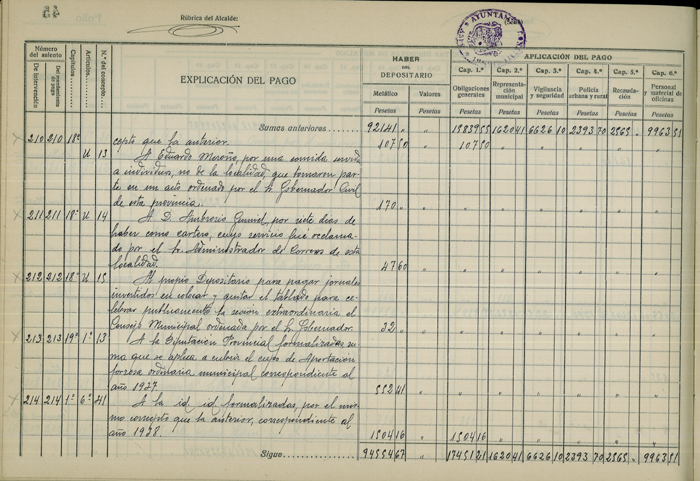 Rúbrica del Alcalde:
AYUNTAMIENTO
Número del asiento
De Intervención
Del mandamiento de pago
Capítulos
Artículos
N.º del concepto
EXPLICACIÓN DEL PAGO
HABER DEL DEPOSITARIO
Metálico
Valores
Pesetas
Pesetas
APLICACIÓN DEL PAGO
Cap. 1.º Cap. 2.º Cap. 3.º Cap. 4.º Cap. 5.º Cap. 6.º
Obligaciones generales
Representación municipal
Vigilancia y seguridad
Policía urbana y rural
Recaudación
Personal y material de oficinas
Pesetas Pesetas Pesetas Pesetas Pesetas Pesetas
Sumas anteriores 92141 " " 162041 6626 10 2393 70 2565 " 9963 51
210 210 18º cepto que la anterior. 107 50 " 107 50
U 13 A Eduardo por una comida servida
a individuos, no de la localidad, que tomaron par-
te en un acto ordenado por el Sr. Gobernador Civil
de esta provincia. 170 "
211 211 18º U 14 A D. Ambrosio por siete dias de
haber como cartero, cuyo servicio fué reclama-
do por el Sr. Administrador de Correos de esta
localidad. 47 60
212 212 18º U 15 Al propio Depositario para pagar jornales
invertidos en colocar y quitar el tablado para ce-
lebrar publicamente la sesión extraordinaria del
Consejo Municipal ordenada por el Sr. Gobernador. 32 "
213 213 19º 1º 13 A la Diputación Provincial formalizadas, su-
ma que se aplica a cubrir el cupo de Aportacion
forzosa ordinaria municipal correspondiente al
año 1937. 552 41
214 214 1º 6º 41 A la id. id. formalizadas, por el mis-
mo concepto que la anterior, correspondiente al
año 1938. 1504 16 " 1504 16
Sigue 94554 67 " 17451 21 162041 6626 10 2393 70 2565 " 9963 51